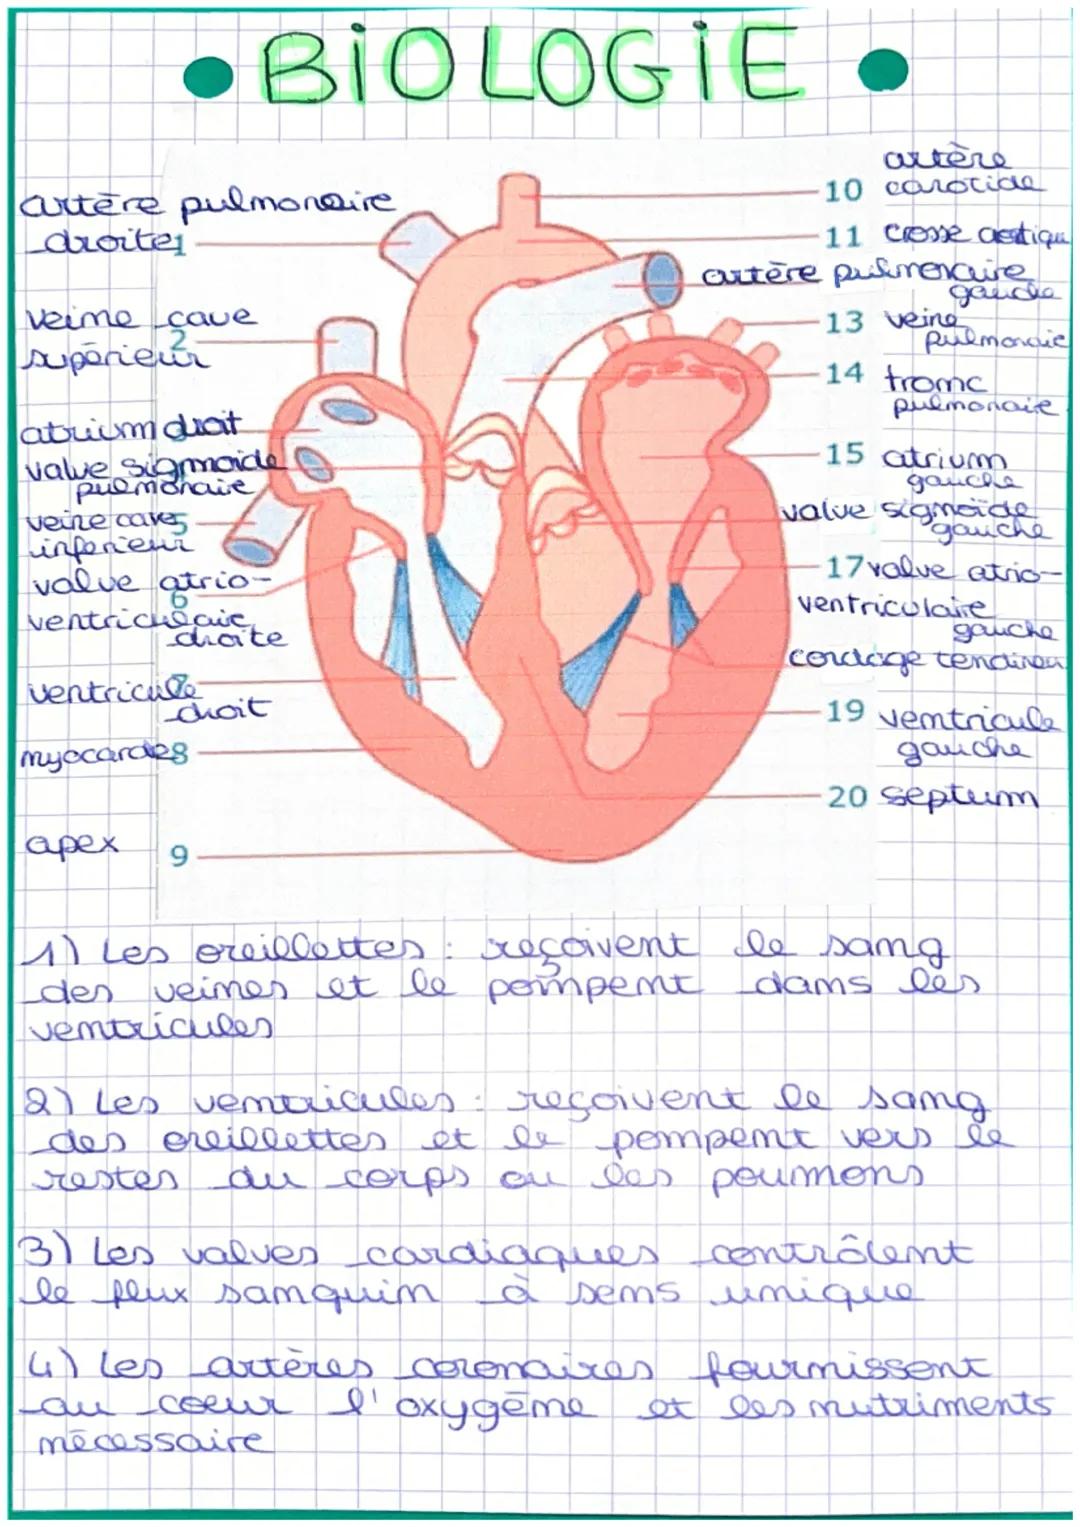 BiOLOGiE
artère pulmonaire
droite 1
veine cave
2
supérieur
atrium droit
valve sigmoide
pulmonaire
veine caves
5
inferieur
valve atrio-
6
ventriculaire
droite
ventricule
7
droit
myocarde 8
apex
9
artère
10 carotide
11 crosse aortique
artère pulmonaire
gauche
13 veine
pulmonaie
14 tronc
pulmonaie
15 atrium
gauche
valve sigmoïde
gauche
17 valve atrio-
ventriculaire
gauche
cordage tendineu
19 ventricule
gauche
20 septum
1) Les oreillettes : reçoivent le sang
des veines et le pompent dans les
ventricules
2) Les ventricules : reçoivent le sang
des oreillettes et le pompent vers le
restes du corps ou les poumons
3) Les valves cardiaques contrôlent
le flux sanguin à sens unique
4) Les artères coronaires fournissent
au coeur l'oxygène et les nutriments
nécessaire